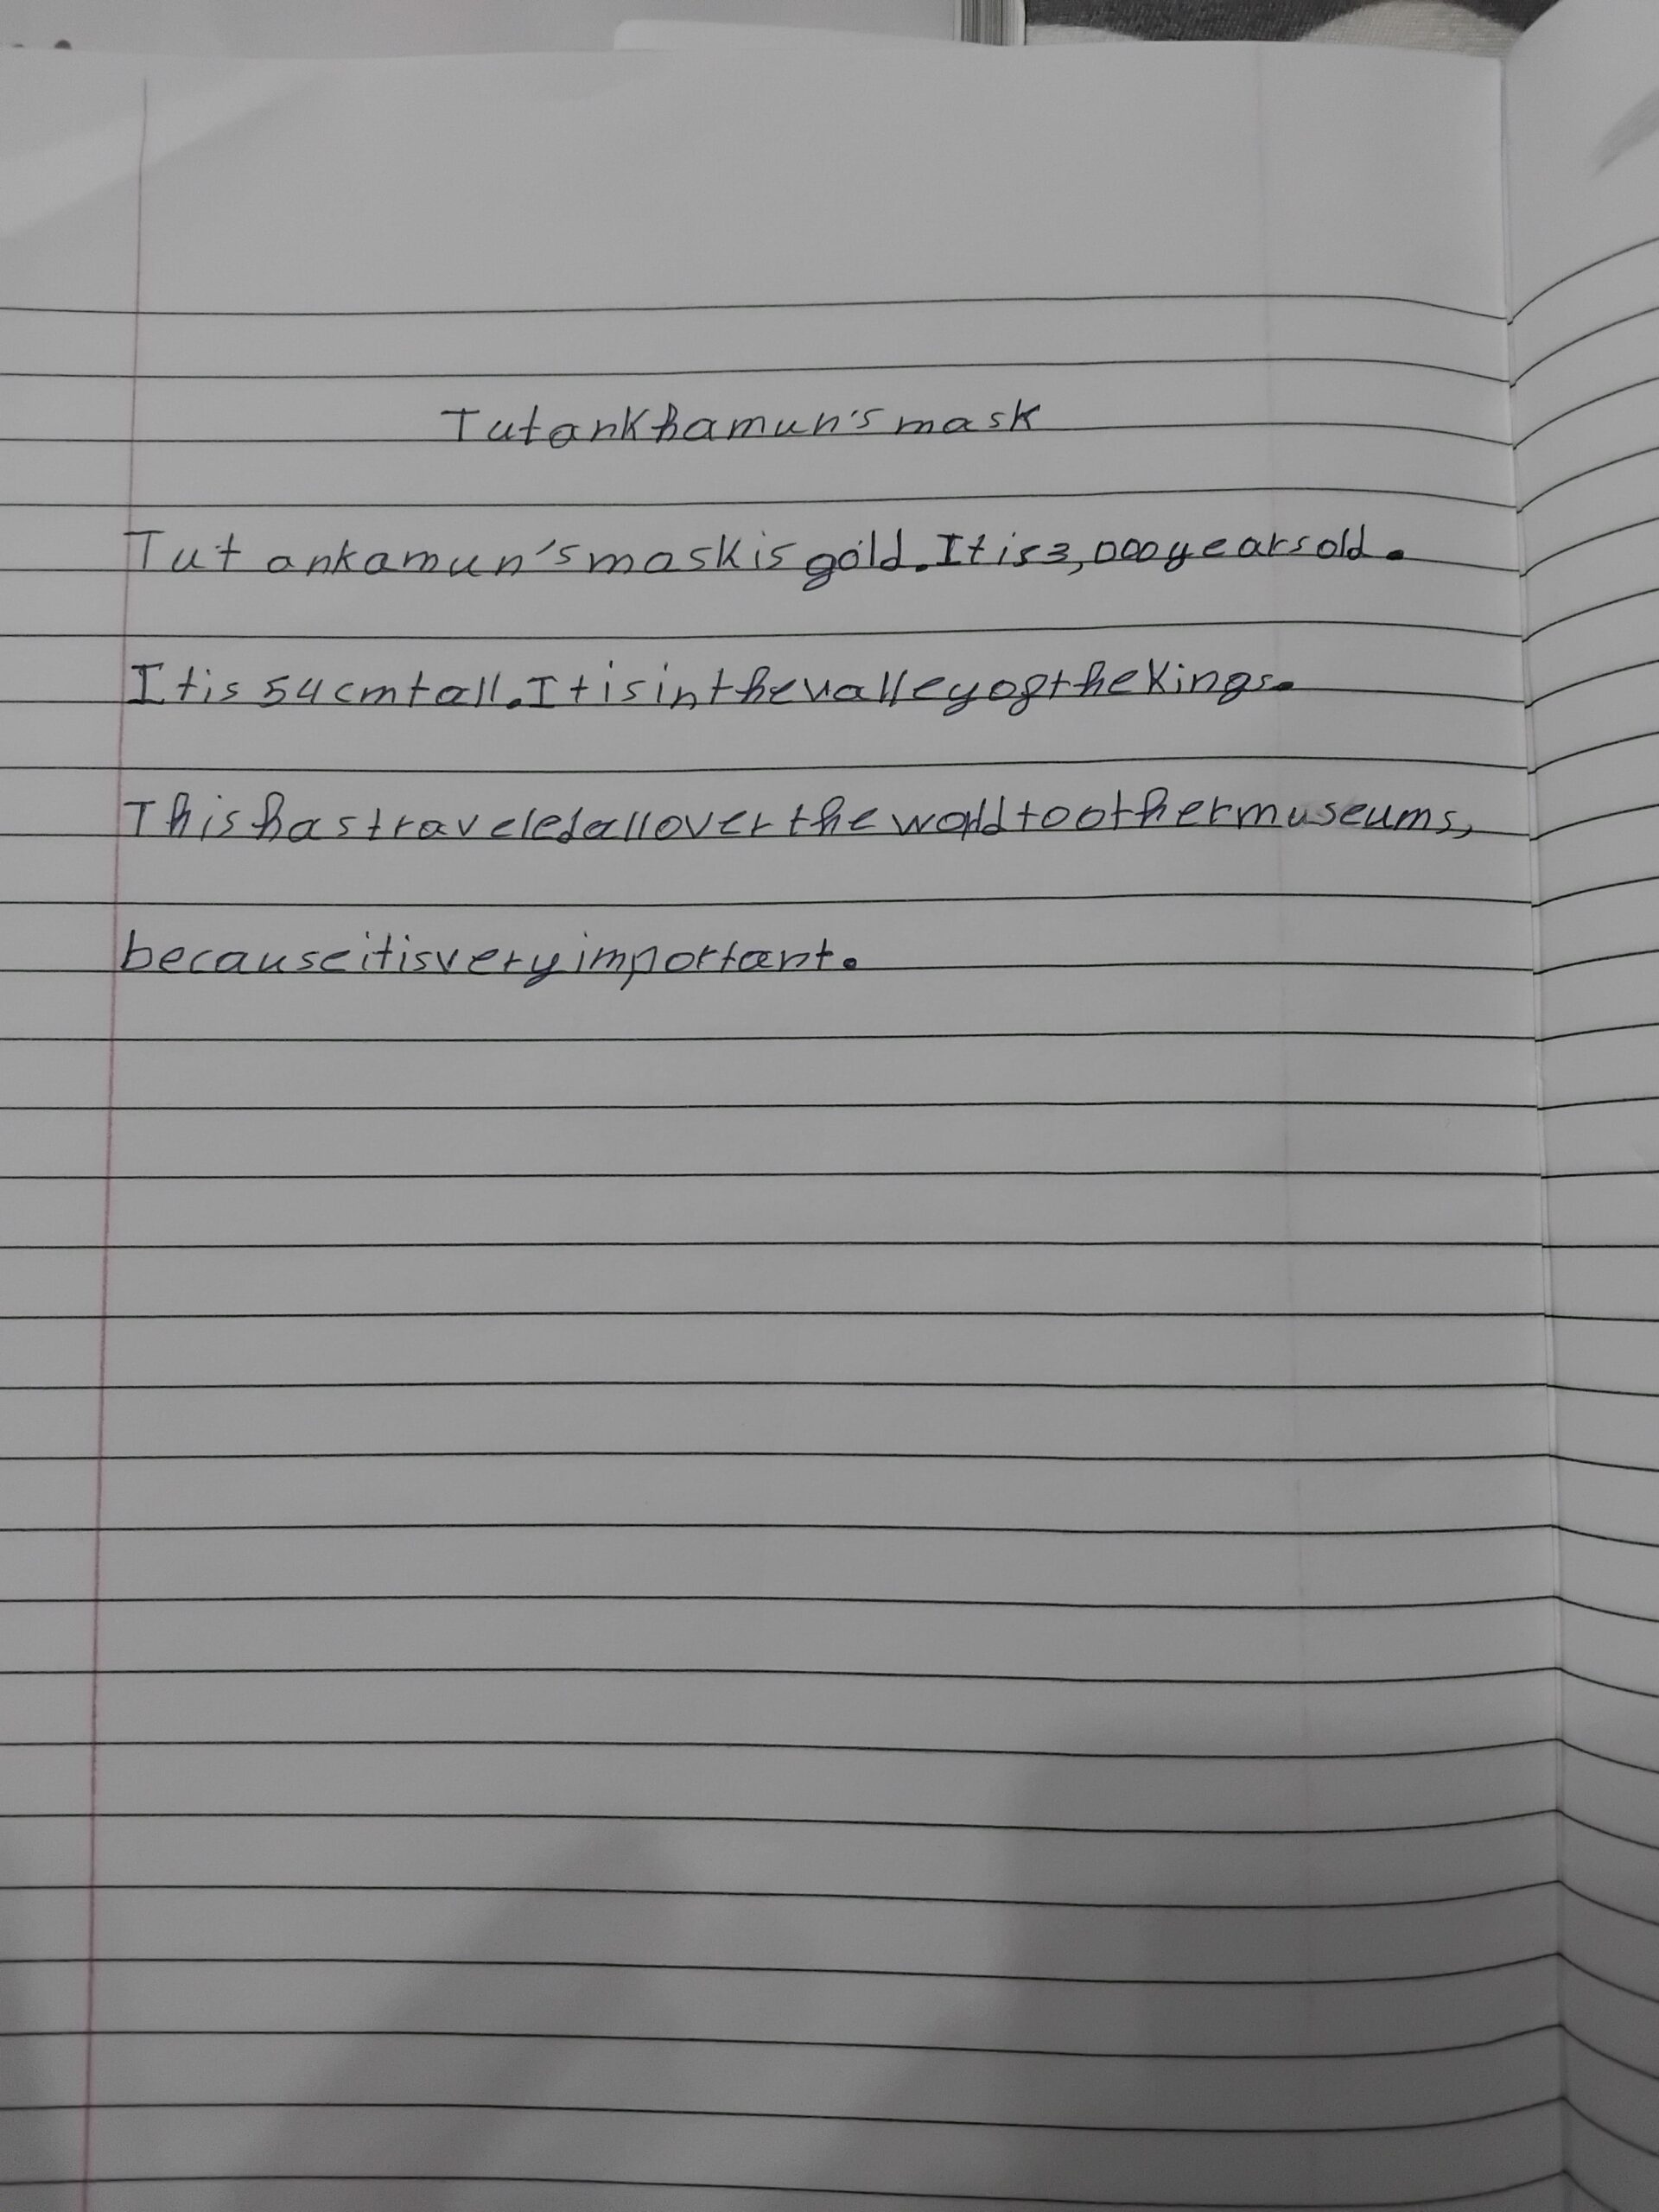 Tutankhamun's mask
Tutankamun's mask is gold. It is 3,000 years old.
It is 54 cm tall. It is in the valley of the Kings.
This has traveled all over the world to other museums,
because it is very important.